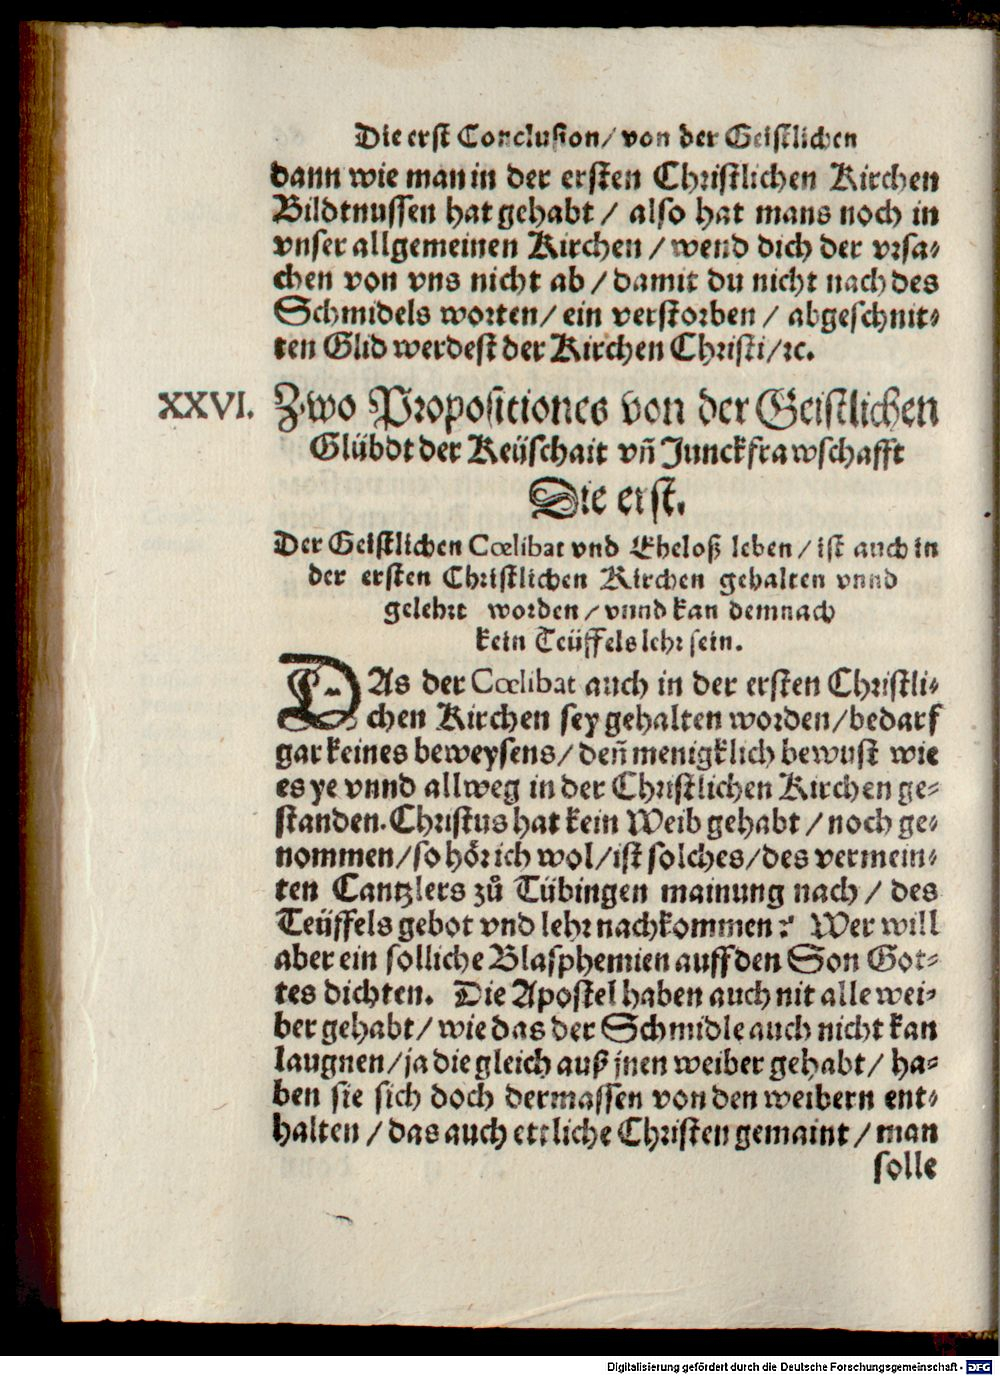 Die erst Conclusion/ von der Geistlichen
dann wie man in der ersten Christlichen Kirchen
Bildtnussen hat gehabt / also hat mans noch in
vnser allgemeinen Kirchen / wend dich der vrsa-
chen von vns nicht ab / damit du nicht nach des
Schmidels worten/ ein verstorben / abgeschnit-
ten Glid werdest der Kirchen Christi/ꝛc.
XXVI. Zwo Propositiones von der Geistlichen
Glübdt der Keüschait vñ Junckfrawschafft
Die erst.
Der Geistlichen Cœlibat vnd Eheloß leben / ist auch in
der ersten Christlichen Kirchen gehalten vnnd
gelehrt worden / vnnd kan demnach
kein Teüffels lehr sein.
DAs der Cœlibat auch in der ersten Christli-
chen Kirchen sey gehalten worden/bedarf
gar keines beweysens/ deñ menigklich bewust wie
es ye vnnd allweg in der Christlichen Kirchen ge-
standen. Christus hat kein Weib gehabt / noch ge-
nommen/so hör ich wol/ist solches/des vermein-
ten Cantzlers zů Tübingen mainung nach / des
Teüffels gebot vnd lehr nachkommen? Wer will
aber ein solliche Blasphemien auff den Son Got-
tes dichten. Die Apostel haben auch nit alle wei-
ber gehabt/ wie das der Schmidle auch nicht kan
laugnen/ja die gleich auß jnen weiber gehabt/ ha-
ben sie sich doch dermassen von den weibern ent-
halten / das auch ettliche Christen gemaint / man
solle
Digitalisierung gefördert durch die Deutsche Forschungsgemeinschaft - DFG